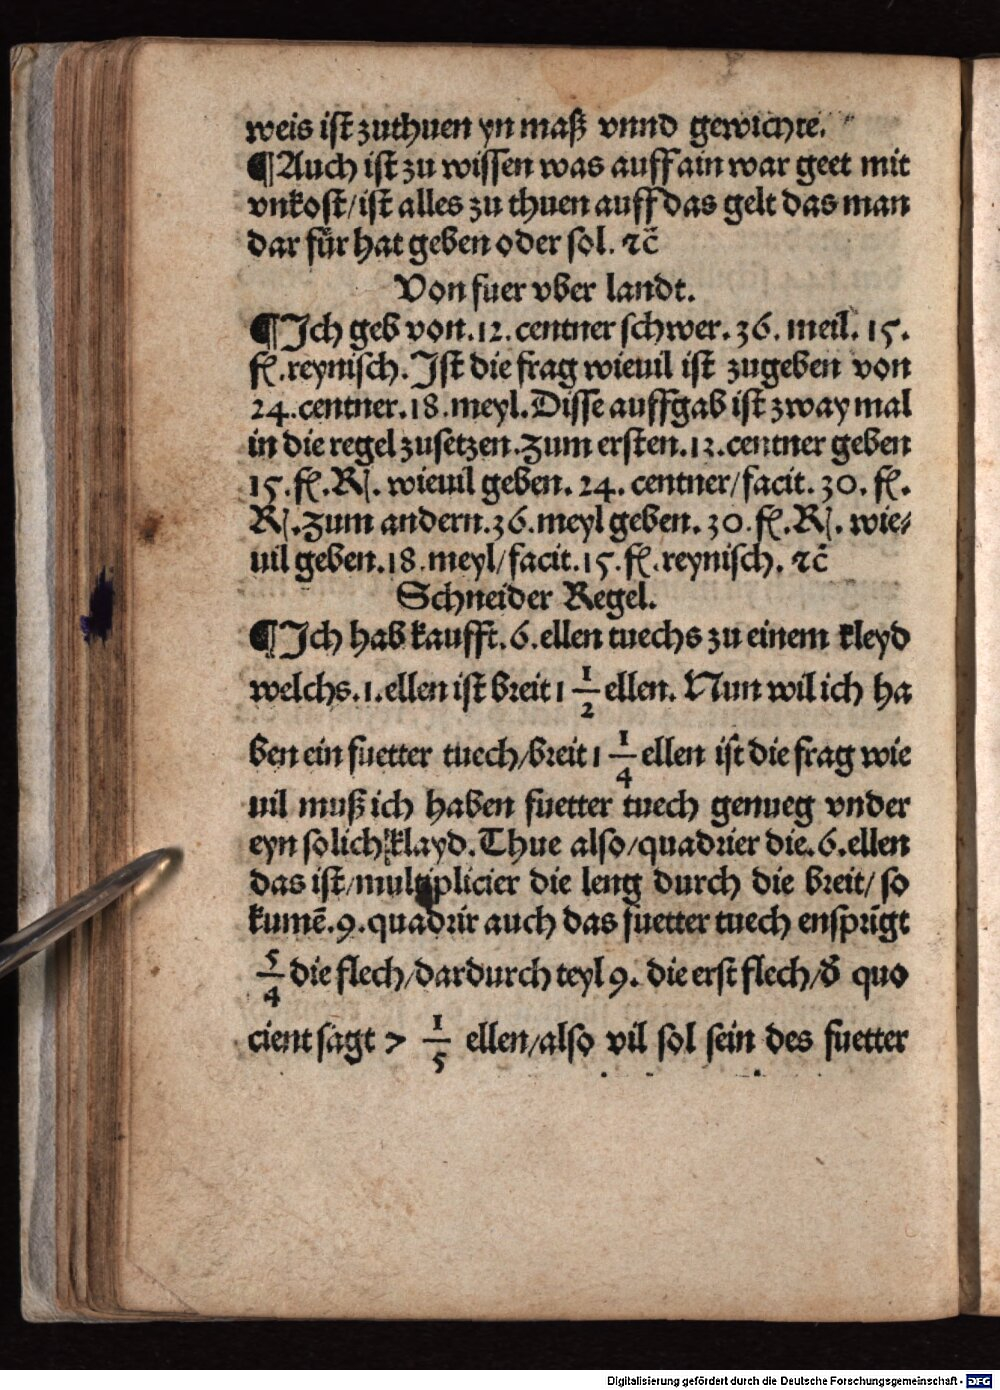 weis ist zuthuen yn maß vnnd gewichte.
¶Auch ist zu wissen was auff ain war geet mit
vnkost/ist alles zu thuen auff das gelt das man
dar für hat geben oder sol. ⁊c̃
Von fuer vber landt.
¶Ich geb von.12.centner schwer.36. meil. 15.
fl.reynisch. Ist die frag wieuil ist zugeben von
24.centner.18.meyl.Disse auffgab ist zway mal
in die regel zusetzen.Zum ersten.12.centner geben
15.fl.R. wieuil geben. 24. centner/facit. 30. fl.
R.Zum andern.36.meyl geben. 30.fl.R. wie⸗
uil geben.18.meyl/facit.15.fl.reynisch. ⁊c̃
Schneider Regel.
¶Ich hab kaufft.6.ellen tuechs zu einem kleyd
welchs.1.ellen ist breit 1 1/2 ellen. Nun wil ich ha
ben ein fuetter tuech/breit 1 1/4 ellen ist die frag wie
uil muß ich haben fuetter tuech genueg vnder
eyn solich klayd.Thue also/quadrier die.6.ellen
das ist/multiplicier die leng durch die breit/so
kumẽ.9.quadrir auch das fuetter tuech ensprĩgt
5/4 die flech/dardurch teyl 9. die erst flech/d̃ quo
cient sagt 7 1/5 ellen/also vil sol sein des fuetter
Digitalisierung gefördert durch die Deutsche Forschungsgemeinschaft - DFG